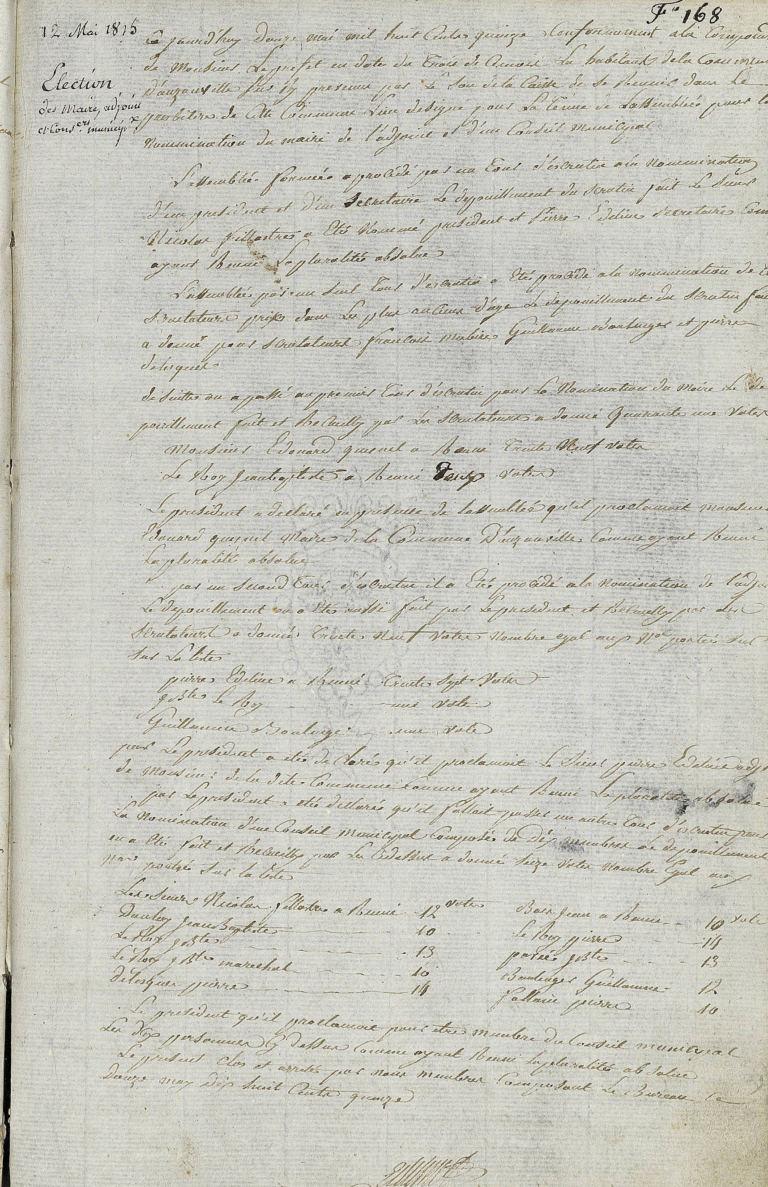 Fo 168
12 Mai 1815
Election
des Maire, adjoint
et Cons.ers municip.x
Ce jourd'huy douze mai mil huit Cents quinze Conformement a la
de Monsieur Le prefet en date du trois de Ce mois Le habitans de la Commune
par Le Son de la Caisse de se Reunir dans Le
presbitere de Cette Commune Lieu designé pour La tenue de Lassemblée pour la
Nommination du maire de l'adjoint et d'un Conseil Municipal
L'assemblée formée a procédé par un tour d'escrutin a la nommination
d'un president et d'un Secretaire Le depouillement du scrutin fait Le Sieur
Nicolas fillastre a Eté Nommé president et Pierre Edeline Secretaire Comme
ayant Reunié La pluralité absolue
L'assemblée par un seul tour d'escrutin a Eté procédé a la nommination de
Scrutateurs prix dans Les plus anciens d'age Le depouillement du Scrutin fait
a donné pour scrutateurs francois Guillaume Boulenger et pierre
delesques
de suitte on a passé au premier tour d'escrutin pour La Nomination du Maire Le de
pouillement fait et Recueilly par Les scrutateurs a donné Quarante une votes
Monsieur Edouard quesnel a Reuni trente Neuf votes
Le Roy Jean baptiste a Reuni Deux votes
Le president a declaré en presence de Lassemblée qu'il proclamoit monsieur
Edouard quesnel Maire de la Commune Comme ayant Reunié
La pluralité absolue
par un second tour d'escrutin il a Eté procédé a la nomination de l'adjoint
Le depouillement en a Eté aussi fait par Le president et Recueilly par Les
scrutateurs a donné trente neuf votes nombre egal aux portés sur
sur La liste
pierre Edeline a Reunié trente sept votes
jn Bte Le Roy une vote
Guillaume Boulenger une vote
par Le president a eté declaré qu'il proclamoit Le Sieur pierre Edeline adjoint
de monsieur de la dite Commune Comme ayant Reunié La pluralité absolue
par Le president a eté declaré qu'il fallait passer un autre tour d'escrutin pour
La Nomination d'un Conseil municipal Composé de Dix membres Le depouillement
en a Eté fait et Recueilly par Les a donné seize votes nombre Egal aux
sur La liste
Les Sieurs Nicolas fillastre a Reunié 12 votes
Jean Baptiste 10
Le Roy jn Bte 13
Le Roy jn Bte marechal 10
delesques pierre 14
Jean a Reunié 10 vote
Le Roy pierre 14
jn Bte 13
Boulenger Guillaume 12
pierre 10
Le president qu'il proclamoit pour etre membre du Conseil municipal
Les Dix personnes cy dessus Comme ayant Reunié la pluralité absolue
Le present clos et arreté par nous membres Composant Le Bureau Le
Douze may Dix huit Cents quinze